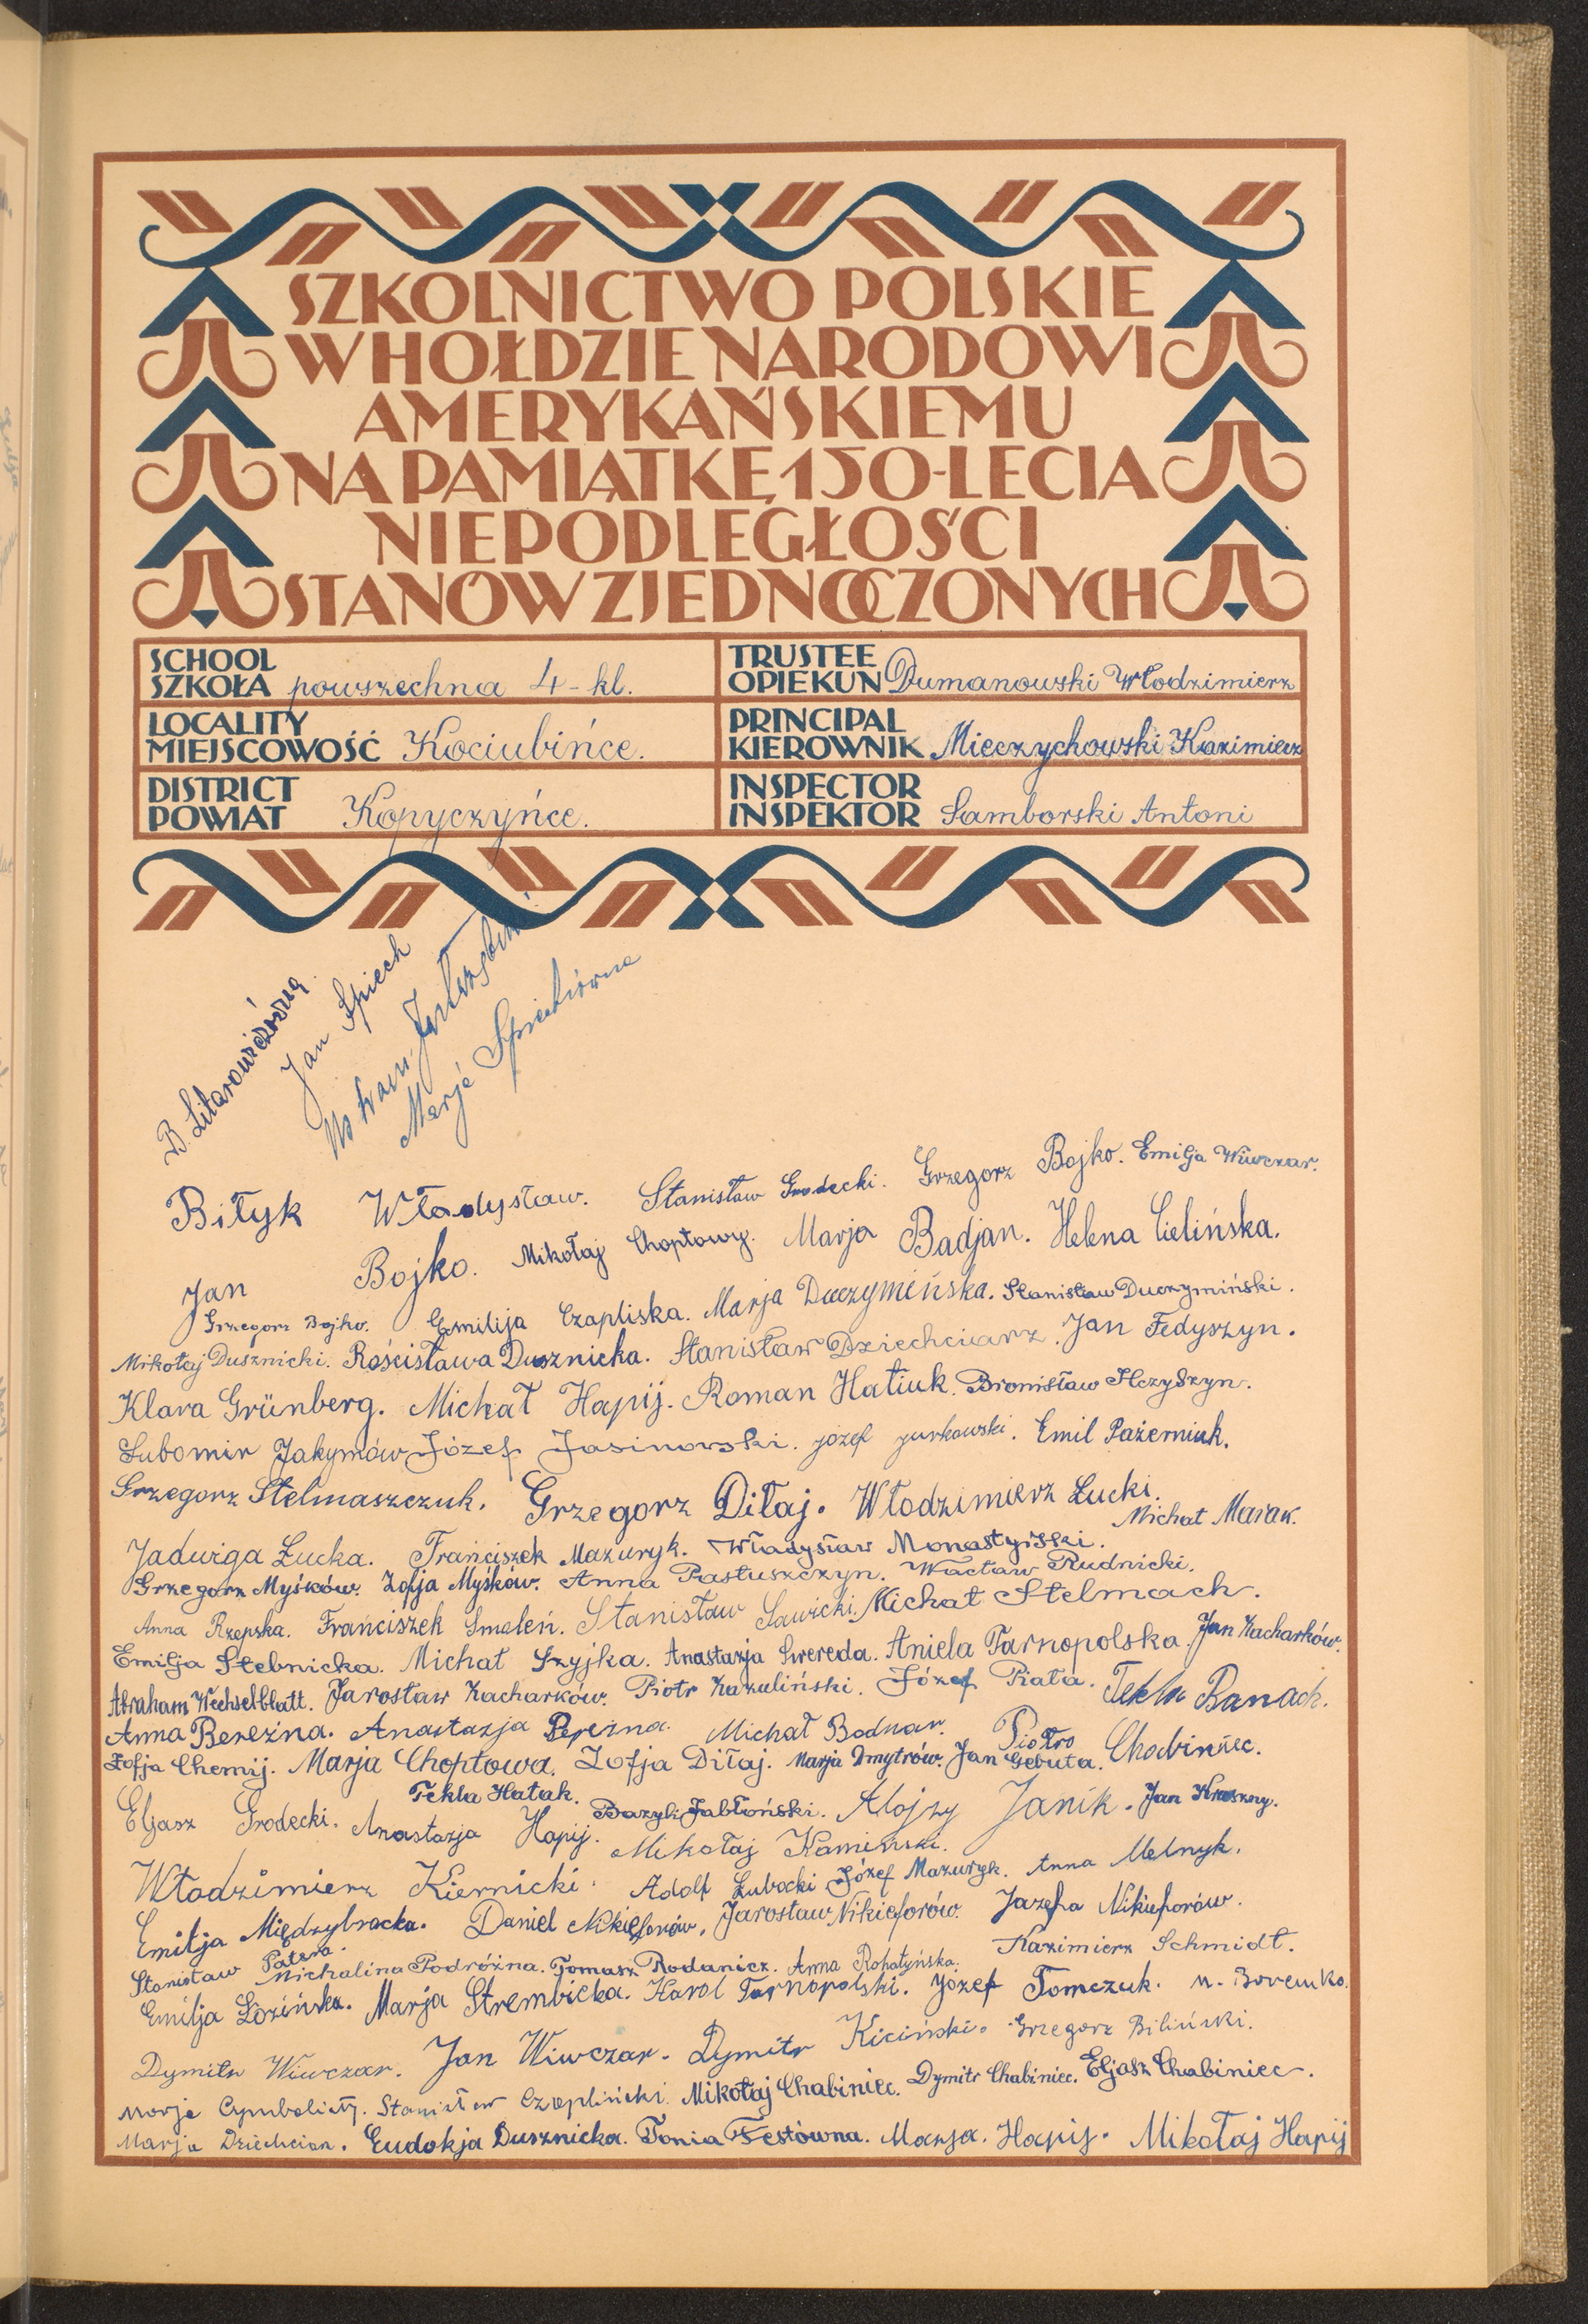 SZKOLNICTWO POLSKIE
W HOŁDZIE NARODOWI
AMERYKAŃSKIEMU
NA PAMIĄTKĘ 150-LECIA
NIEPODLEGŁOŚCI
STANÓW ZJEDNOCZONYCH
SCHOOL
SZKOŁA powszechna 4-kl.
TRUSTEE
OPIEKUN Dumanowski Włodzimierz
LOCALITY
MIEJSCOWOŚĆ Kociubińce.
PRINCIPAL
KIEROWNIK Mieczychowski Kazimierz
DISTRICT
POWIAT Kopyczyńce.
INSPECTOR
INSPEKTOR Samborski Antoni
B. Litarowiczówna
Jan Spiech
Marja Spiechówna
Biłyk Władysław. Stanisław Grodecki. Grzegorz Bojko. Emilja Wiwczar.
Jan Bojko. Mikołaj Choptowy. Marja Badjan. Helena Cielińska.
Grzegorz Bojko. Emilija Czapliska. Marja Duczymińska. Stanisław Duczymiński.
Mikołaj Dusznicki. Rościsława Dusznicka. Stanisław Dziechciarz. Jan Fedyszyn.
Klara Grünberg. Michał Hapij. Roman Hatiuk. Bronisław Ilczyszyn.
Lubomir Jakymów Józef Jasinowski. józef jurkowski. Emil Pażerniuk.
Grzegorz Stelmaszczuk. Grzegorz Diłaj. Włodzimierz Łucki.
Michał Marak.
Jadwiga Łucka. Franciszek Mazuryk. Władysław Monastyrski.
Grzegorz Myśków. Zofja Myśków. Anna Pastuszczyn. Wacław Rudnicki.
Anna Rzepska. Franciszek Smoleń. Stanisław Sawicki. Michał Stelmach.
Emilja Stebnicka. Michał Szyjka. Anastazja Swereda. Aniela Tarnopolska. Jan Zacharków.
Abraham Wechselblatt. Jarosław Zacharków. Piotr Zazuliński. Józef Piała. Tekla Banach.
Anna Bereźna. Anastazja Bereźna. Michał Bodnar. Piotro Chabiniec.
Zofja Chemij. Marja Choptowa. Zofja Diłaj. Marja Dmytrów. Jan Gebuta.
Tekla Hatak.
Eljasz Grodecki. Anastazja Hapij. Bazyli Jabłoński. Alojzy Janik. Jan Kraszny.
Mikołaj Kamiński.
Włodzimierz Kiernicki. Adolf Łubocki Józef Mazuryk. Anna Melnyk.
Emilja Międzybrocka. Daniel Nikieforów. Jarosław Nikieforów. Jazefa Nikieforów.
Stanisław Patera. Michalina Podróżna. Tomasz Rodanicz. Anna Rohatyńska. Kazimierz Schmidt.
Emilja Łozińska. Marja Strembicka. Karol Tarnopolski. Józef Tomczuk. M. Boremko.
Dymitr Wiwczar. Jan Wiwczar. Dymitr Kiciński. Grzegorz Biliński.
Marja Cymbalisty. Stanisław Czapliński. Mikołaj Chabiniec. Dymitr Chabiniec. Eljasz Chabiniec.
Marja Dziechciar. Eudokja Dusznicka. Tonia Festówna. Marja. Hapij. Mikołaj Hapij